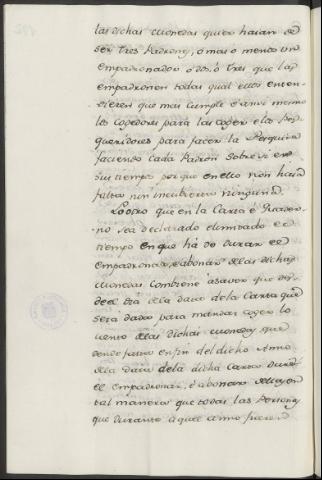 las dichas monedas quier haian de
ser tres Padrones, o mas o menos un
empadronador o dos, o tres que las
empadronen todas qual ellos enten-
dieren que mas cumple e ansi mesmo
los cogedores para las coger e los Pes-
queridores para facer la Pesquisa
faciendo cada Padron sobre si en
su tiempo por que en ello non haia
falta nin incubierta ninguna.
Lo otro que en la Carta e Quader-
no sea declarado e limitado el
tiempo en que há de durar el
empadronar, e abonar dellas dichas
monedas combiene á saver que des-
de el dia de la data de la Carta que
sera dada para mandar coger lo
cierto dellas dichas monedas que
dende fasta en fin del dicho Anno
de la data de la dicha Carta dure
el empadronar, é abonar dellas en
tal manera que todas las Personas
que durante aquel anno fueren